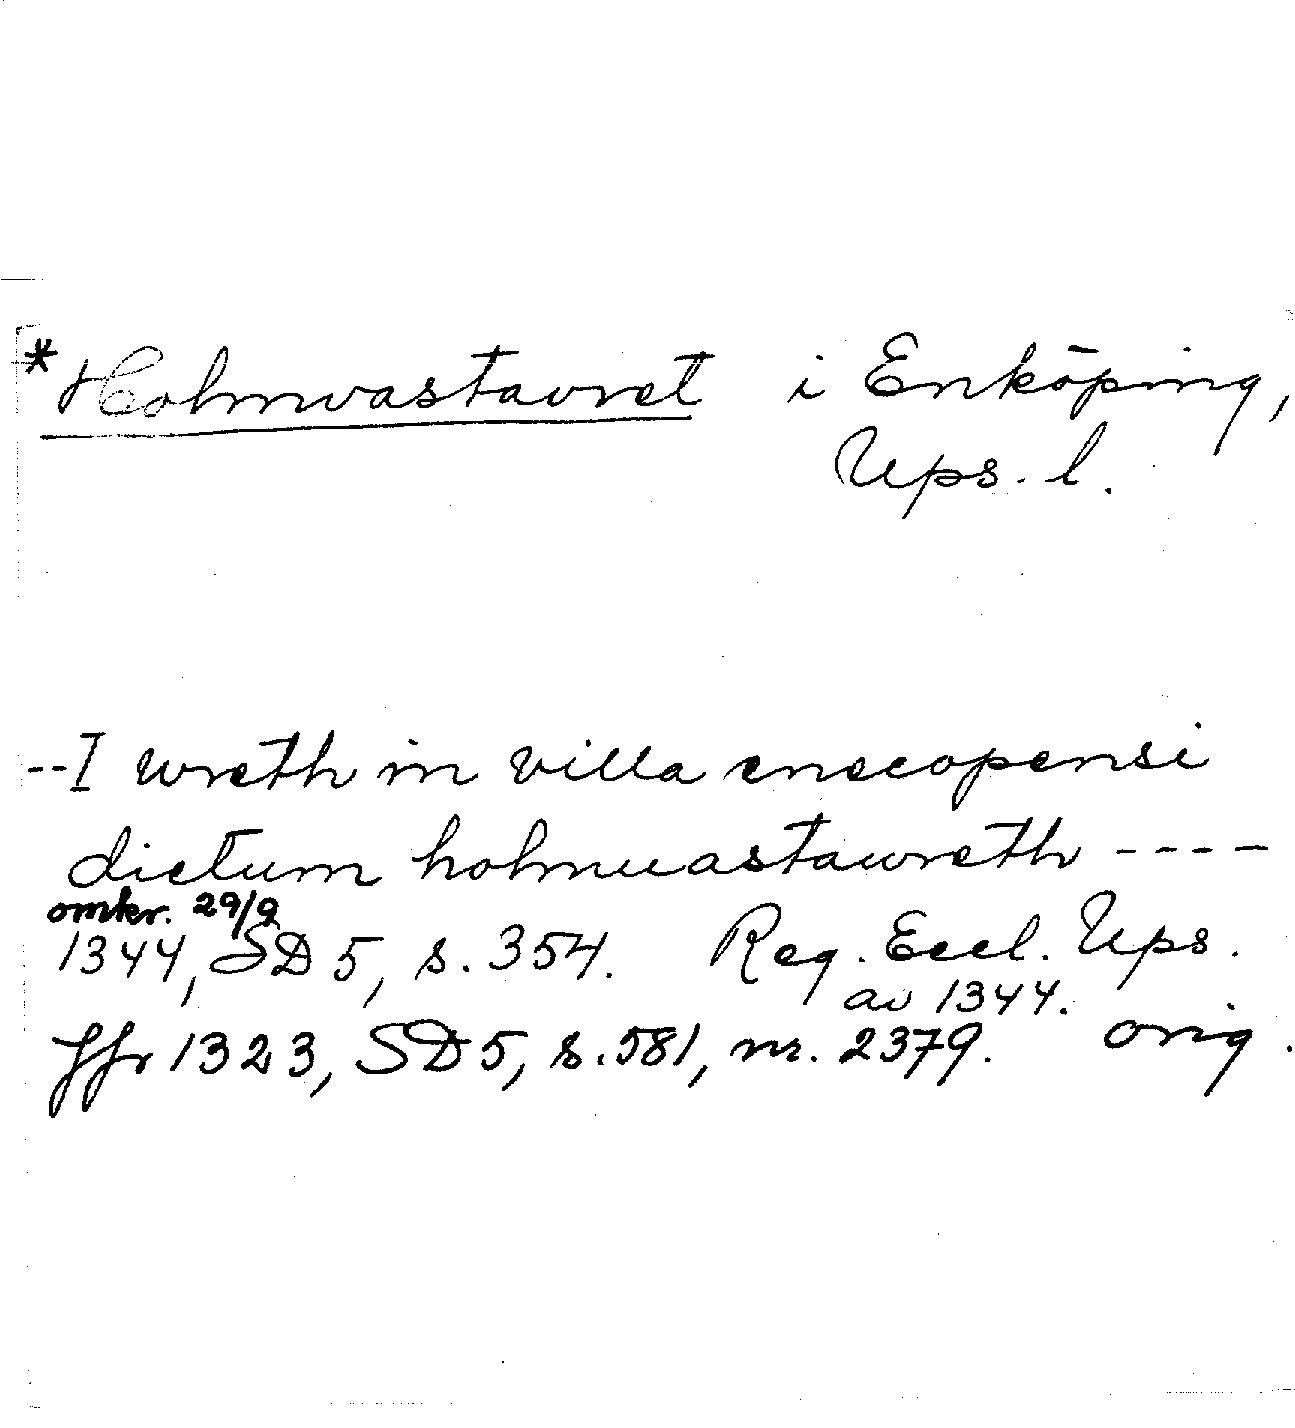 *Holmvastavret i Enköping,
Ups. l.
--I wreth in villa enecopensi
dictum holmuastawreth ----
omkr. 29/9
1344, SD 5, s. 354. Reg. Eccl. Ups.
av 1344.
Jfr 1323, SD 5, s. 581, nr. 2379. orig.